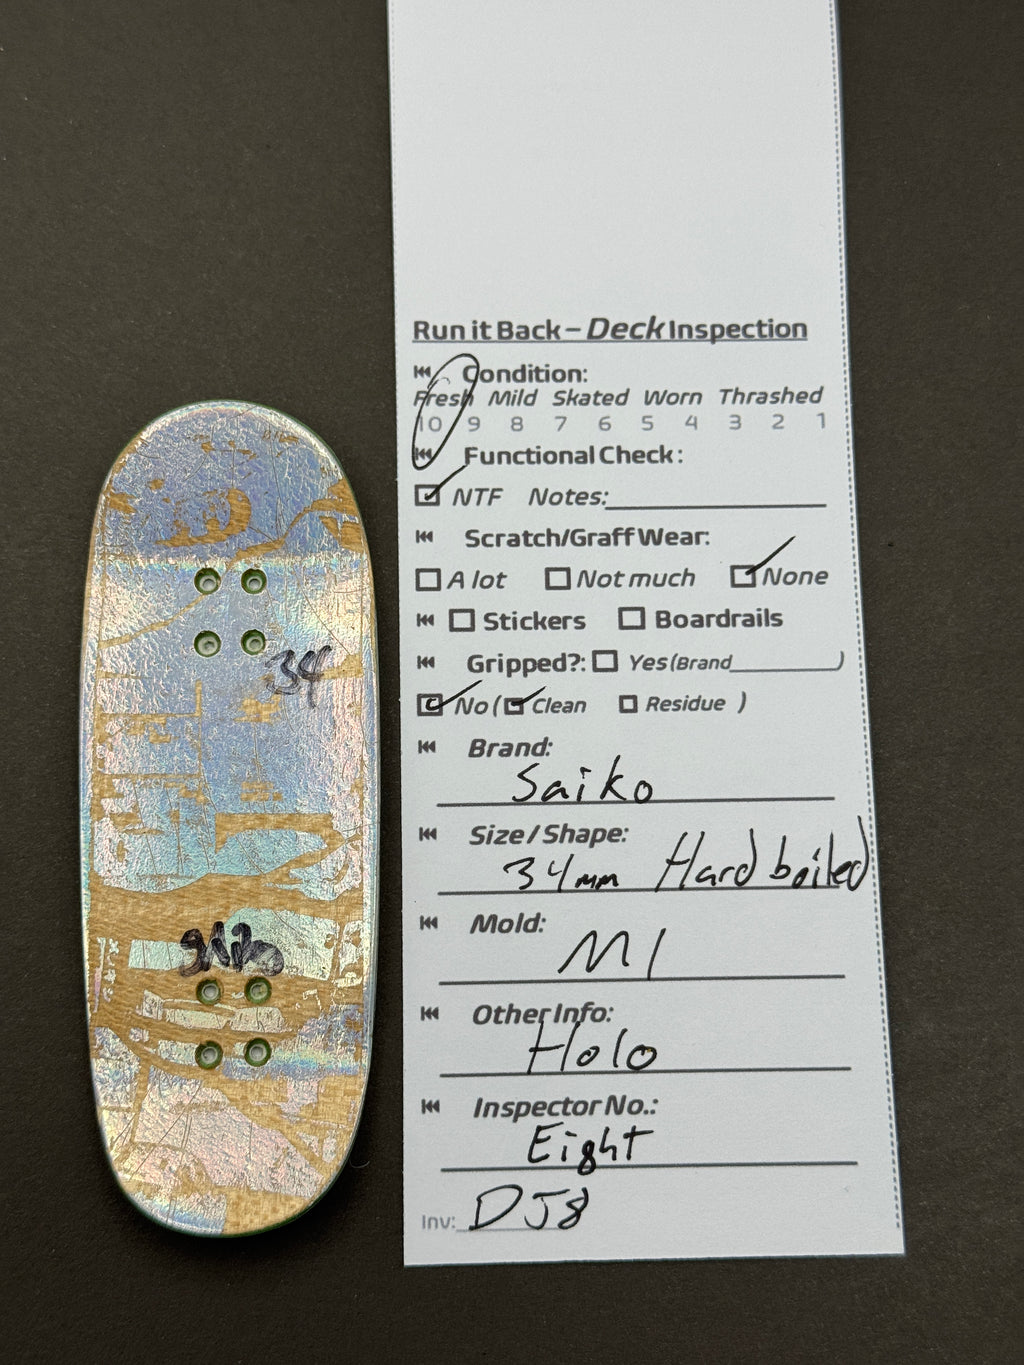 Run it Back – Deck Inspection
Condition:
Fresh Mild Skated Worn Thrashed
10 9 8 7 6 5 4 3 2 1
Functional Check:
NTF Notes:
Scratch/Graff Wear:
A lot Not much None
Stickers Boardrails
Gripped?: Yes (Brand )
No ( Clean Residue )
Brand:
Saiko
Size / Shape:
34mm Hard boiled
Mold:
M1
Other Info:
Holo
Inspector No.:
Eight
Inv: DJ8
34